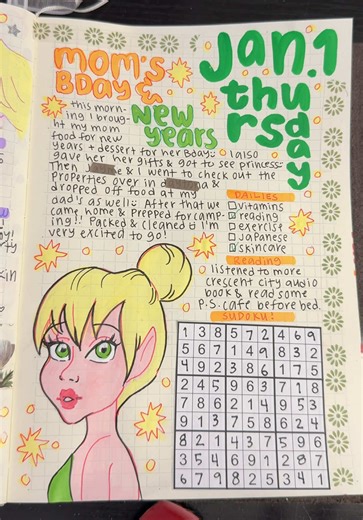 MOM'S
BDAY &
NEW
years
Jan.1
thu
rs
day
this morn-
ing I broug-
ht my mom
food for new
years + dessert for her Bday. I also
gave her her gifts & got to see princess.
Then & I went to check out the
Properties over in &
dropped off food at my
dad's as well. After that we
came home & prepped for camp-
ing!! Packed & cleaned & I'm
very excited to go!
DAILIES
vitamins
reading
exercise
Japanese
skincare
Reading
listened to more
crescent city audio
book & read some
P.S. cafe before bed.
SUDOKU:
1 3 8 5 7 2 4 6 9
5 6 7 1 4 9 8 3 2
4 9 2 3 8 6 1 7 5
2 4 5 9 6 3 7 1 8
7 8 6 2 1 4 9 5 3
9 1 3 7 5 8 6 2 4
8 2 1 4 3 7 5 9 6
3 5 4 6 9 1 2 8 7
6 7 9 8 2 5 3 4 1